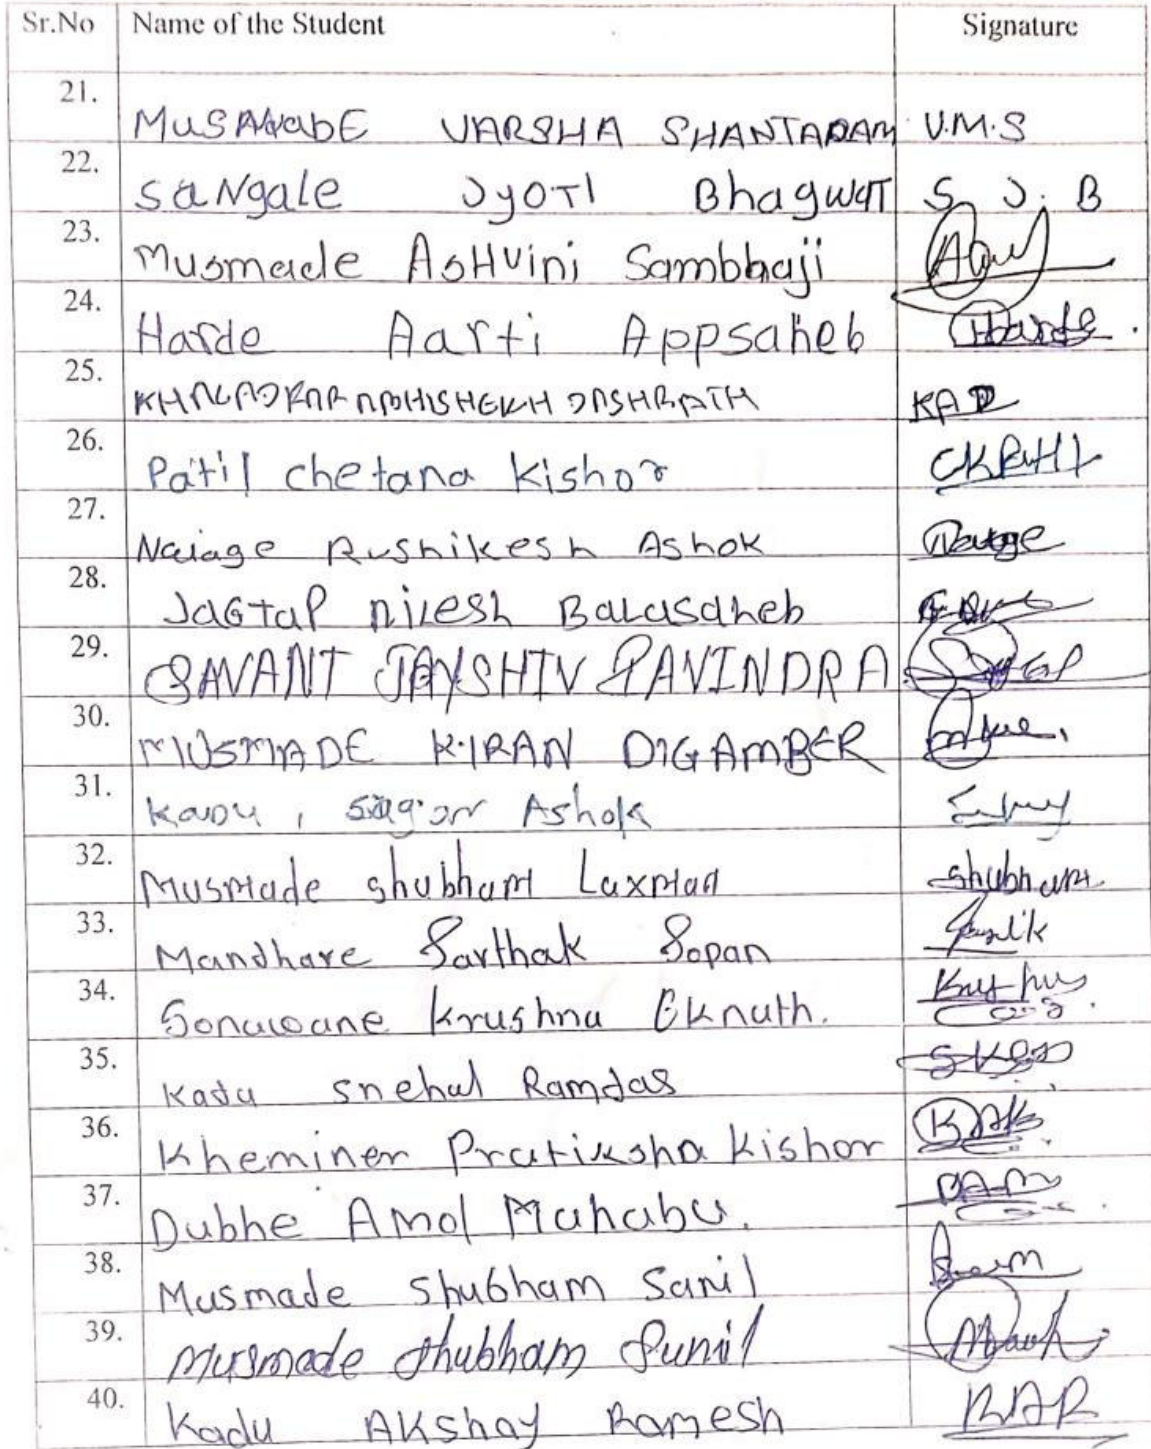 Sr.No Name of the Student Signature
21. MUSMADE VARSHA SHANTARAM V.M.S
22. SaNgale JyoTI BhagwaT S J. B
23. Musmade AsHvini Sambhaji
24. Harde Aarti Appsaheb Harde.
25. ABHISHEKH DASHRATH KAD
26. Patil chetana kishor
27. Rushikesh Ashok
28. JaGtaP nilesh Balasaheb
29. SAVANT JAYSHIV RAVINDRA
30. MUSMADE KIRAN DIGAMBER
31. KaDu, Sagar Ashok
32. Musmade shubham Laxman shubham.
33. Mandhare Sarthak Sopan
34. Sonawane Krushna Eknath.
35. Kadu snehal Ramdas
36. Kheminer Pratiksha Kishor KAK.
37. Dubhe Amol Mahabu.
38. Musmade Shubham Sanil
39. Musmade Shubham Sunil
40. Kadu AKshay Ramesh KAR